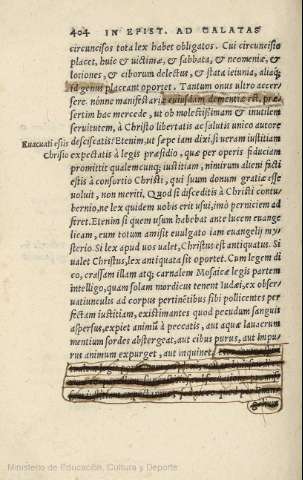 404 IN EPIST. AD GALATAS
circuncisos tota lex habet obligatos. Cui circuncisio
placet, huic & uictimæ, & sabbata, & neomeniæ, &
lotiones, & ciborum delectus, & stata ieiunia, aliaq;
id genus placeant oportet. Tantum onus ultro accer
sere. nónne manifestariæ cuiusdam dementiæ est, præ
sertim hac mercede, ut ob molestissimam & inutilem
seruitutem, à Christo libertatis ac salutis unico autore
Euacuati estis desciscatis? Etenim, ut sæpe iam dixi, si ueram iustitiam
à Christo expectatis à legis præsidio, quæ per operis fiduciam
promittit qualemcunq; iustitiam, nimirum alieni facti
estis à consortio Christi, qui suum donum gratiæ esse
uoluit, non meriti. Quod si disceditis à Christi contu
bernio, ne lex quidem uobis erit usui, imò perniciem ad
feret. Etenim si quem usum habebat ante lucem euange
licam, eum totum amisit euulgato iam euangelij my
sterio. Si lex apud uos ualet, Christus est antiquatus. Si
ualet Christus, lex antiquata sit oportet. Cum legem di
co, crassam illam atq; carnalem Mosaicæ legis partem
intelligo, quam solam mordicus tenent Iudæi, ex obser
uatiunculis ad corpus pertinētibus sibi pollicentes per
fectam iustitiam, existimantes quod pecudum sanguis
aspersus, expiet animū à peccatis, aut aquæ lauacrum
mentium sordes abstergeat, aut cibus purus, aut impu
rus animum expurget, aut inquinet
Ministerio de Educación, Cultura y Deporte